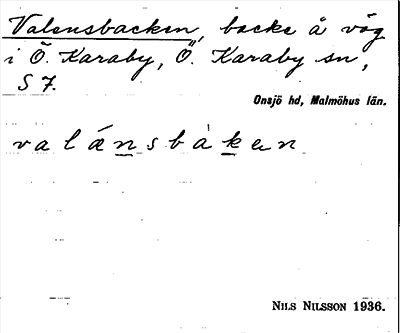 Valensbacken, backe å väg
i Ö. Karaby, Ö. Karaby sn,
S 7.
Onsjö hd, Malmöhus län.
valánsbàken
NILS NILSSON 1936.